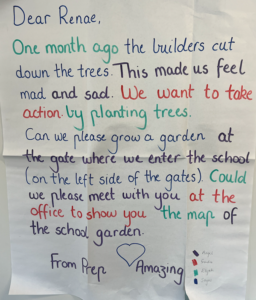 Dear Renae,
One month ago the builders cut
down the trees. This made us feel
mad and sad. We want to take
action by planting trees.
Can we please grow a garden at
the gate where we enter the school
(on the left side of the gates). Could
we please meet with you at the
office to show you the map of
the school garden.
From Prep Amazing